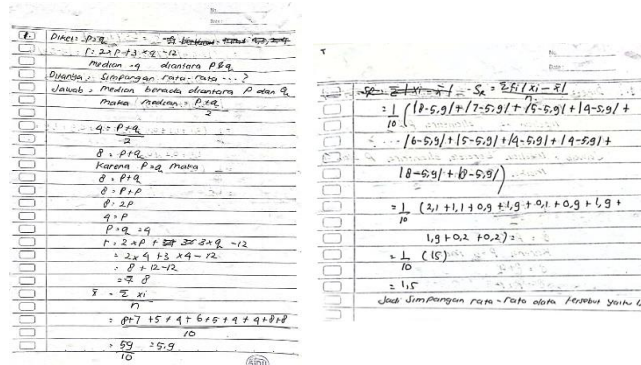 1. Diket: P=q
r = 2 x P + 3 x q - 12
median = 4 diantara P & q
Ditanya: Simpangan rata-rata ... ?
Jawab: median berada diantara P dan q
maka median = P+q
2
4 = P+q
2
8 = P+q
Karena P=q maka
8 = P+q
8 = P+P
8 = 2P
4 = P
P = q = 4
r = 2 x P + 3 x q - 12
= 2 x 4 + 3 x 4 - 12
= 8 + 12 - 12
= 8
x̄ = Σ xi
n
= 8+7+5+4+6+5+4+4+8+8
10
= 59 = 5,9
10
Sx = Σfi |xi - x̄|
n
= 1 (|8-5,9| + |7-5,9| + |5-5,9| + |4-5,9| +
10
|6-5,9| + |5-5,9| + |4-5,9| + |4-5,9| +
|8-5,9| + |8-5,9|)
= 1 (2,1 + 1,1 + 0,9 + 1,9 + 0,1 + 0,9 + 1,9 +
10
1,9 + 0,2 + 0,2) =
= 1 (15)
10
= 1,5
Jadi Simpangan rata-rata data tersebut yaitu